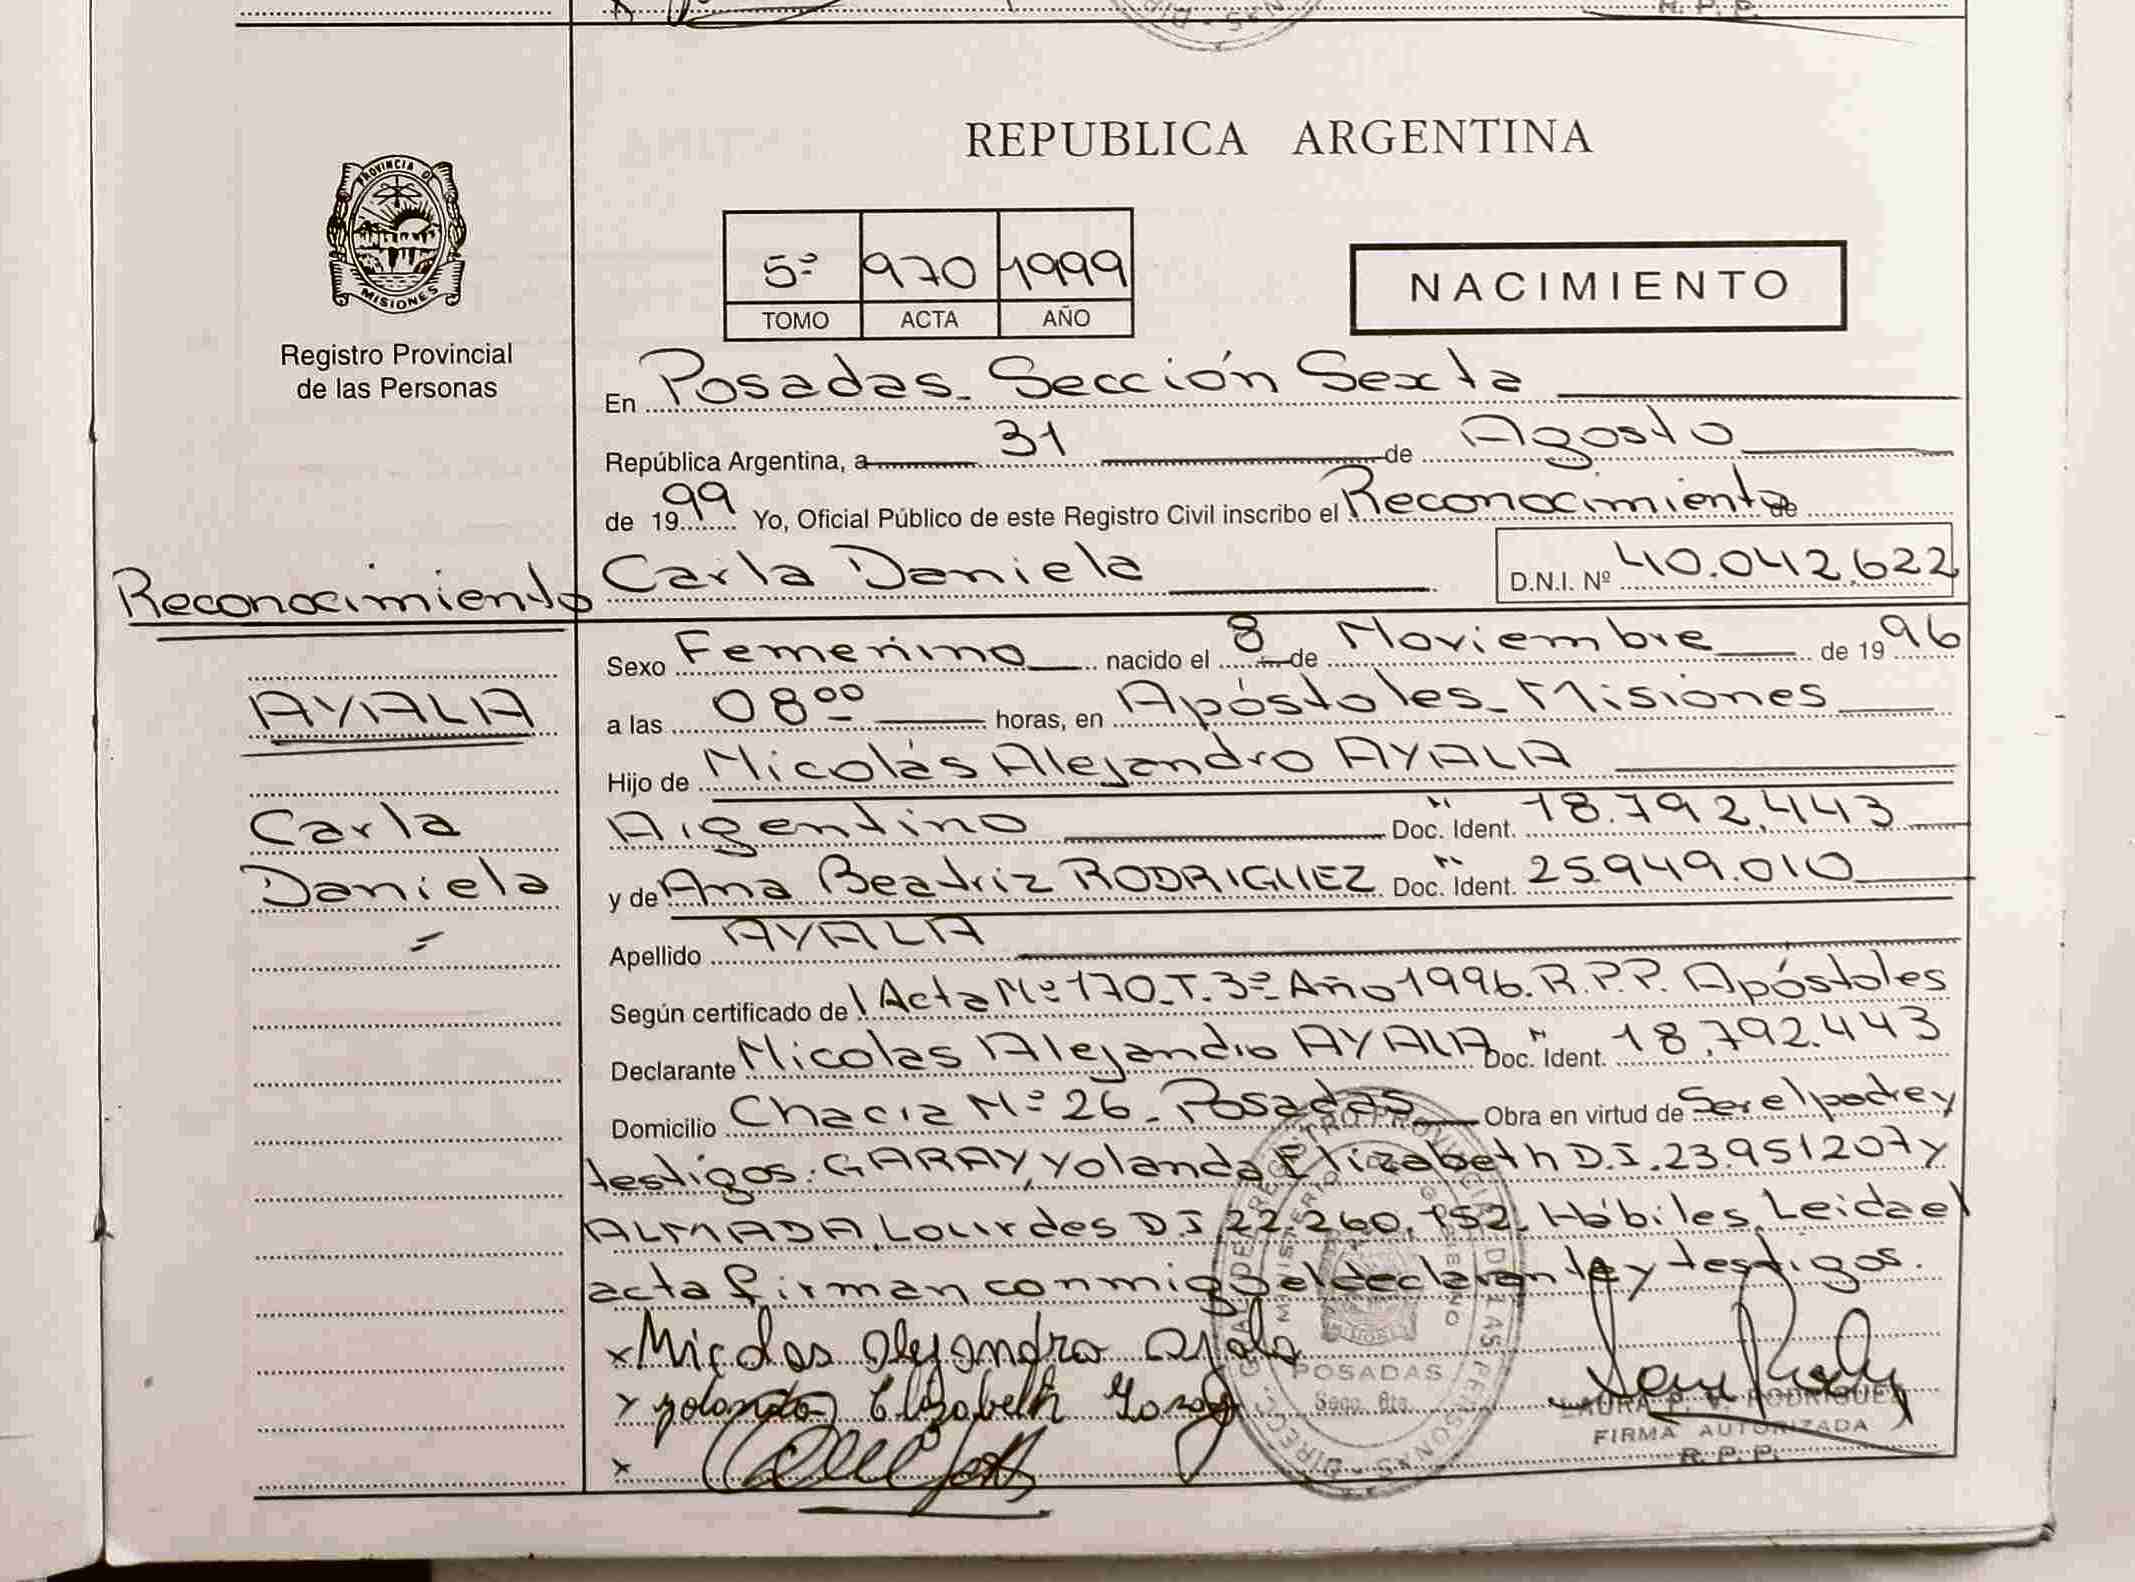 R. P. P.
REPUBLICA ARGENTINA
PROVINCIA DE
MISIONES
Registro Provincial
de las Personas
5º 970 1999
TOMO ACTA AÑO
NACIMIENTO
En Posadas - Sección Sexta
República Argentina, a 31 de Agosto
de 1999 Yo, Oficial Público de este Registro Civil inscribo el Reconocimiento de
Carla Daniela D.N.I. Nº 40.042.622
Reconocimiento
AYALA
Carla
Daniela
Sexo Femenino nacido el 8 de Noviembre de 1996
a las 08 00 horas, en Apóstoles - Misiones
Hijo de Nicolás Alejandro AYALA
Argentino Doc. Ident. 18.792.443
y de Ana Beatriz RODRIGUEZ Doc. Ident. 25949.010
Apellido AYALA
Según certificado del Acta Nº 170. T. 3º Año 1996. R.P.P. Apóstoles
Declarante Nicolas Alejandro AYALA Doc. Ident. 18.792.443
Domicilio Chacra Nº 26 - Posadas Obra en virtud de Ser el padre y
testigos: GARAY, Yolanda Elizabeth D.I. 23.951207 y
ALMADA, Lourdes D.I. 22.260.152. Hábiles, Leida el
acta firman conmigo el declarante y testigos.
x Nicolas Alejandro Ayala
x Yolanda Elizabeth Garay
x
DIRECC. GRAL DE REGISTRO PROVINCIAL DE LAS PERSONAS
MINISTERIO GOBIERNO
MISIONES
POSADAS
Secc. 6ta.
LAURA P. V. RODRIGUEZ
FIRMA AUTORIZADA
R. P. P.